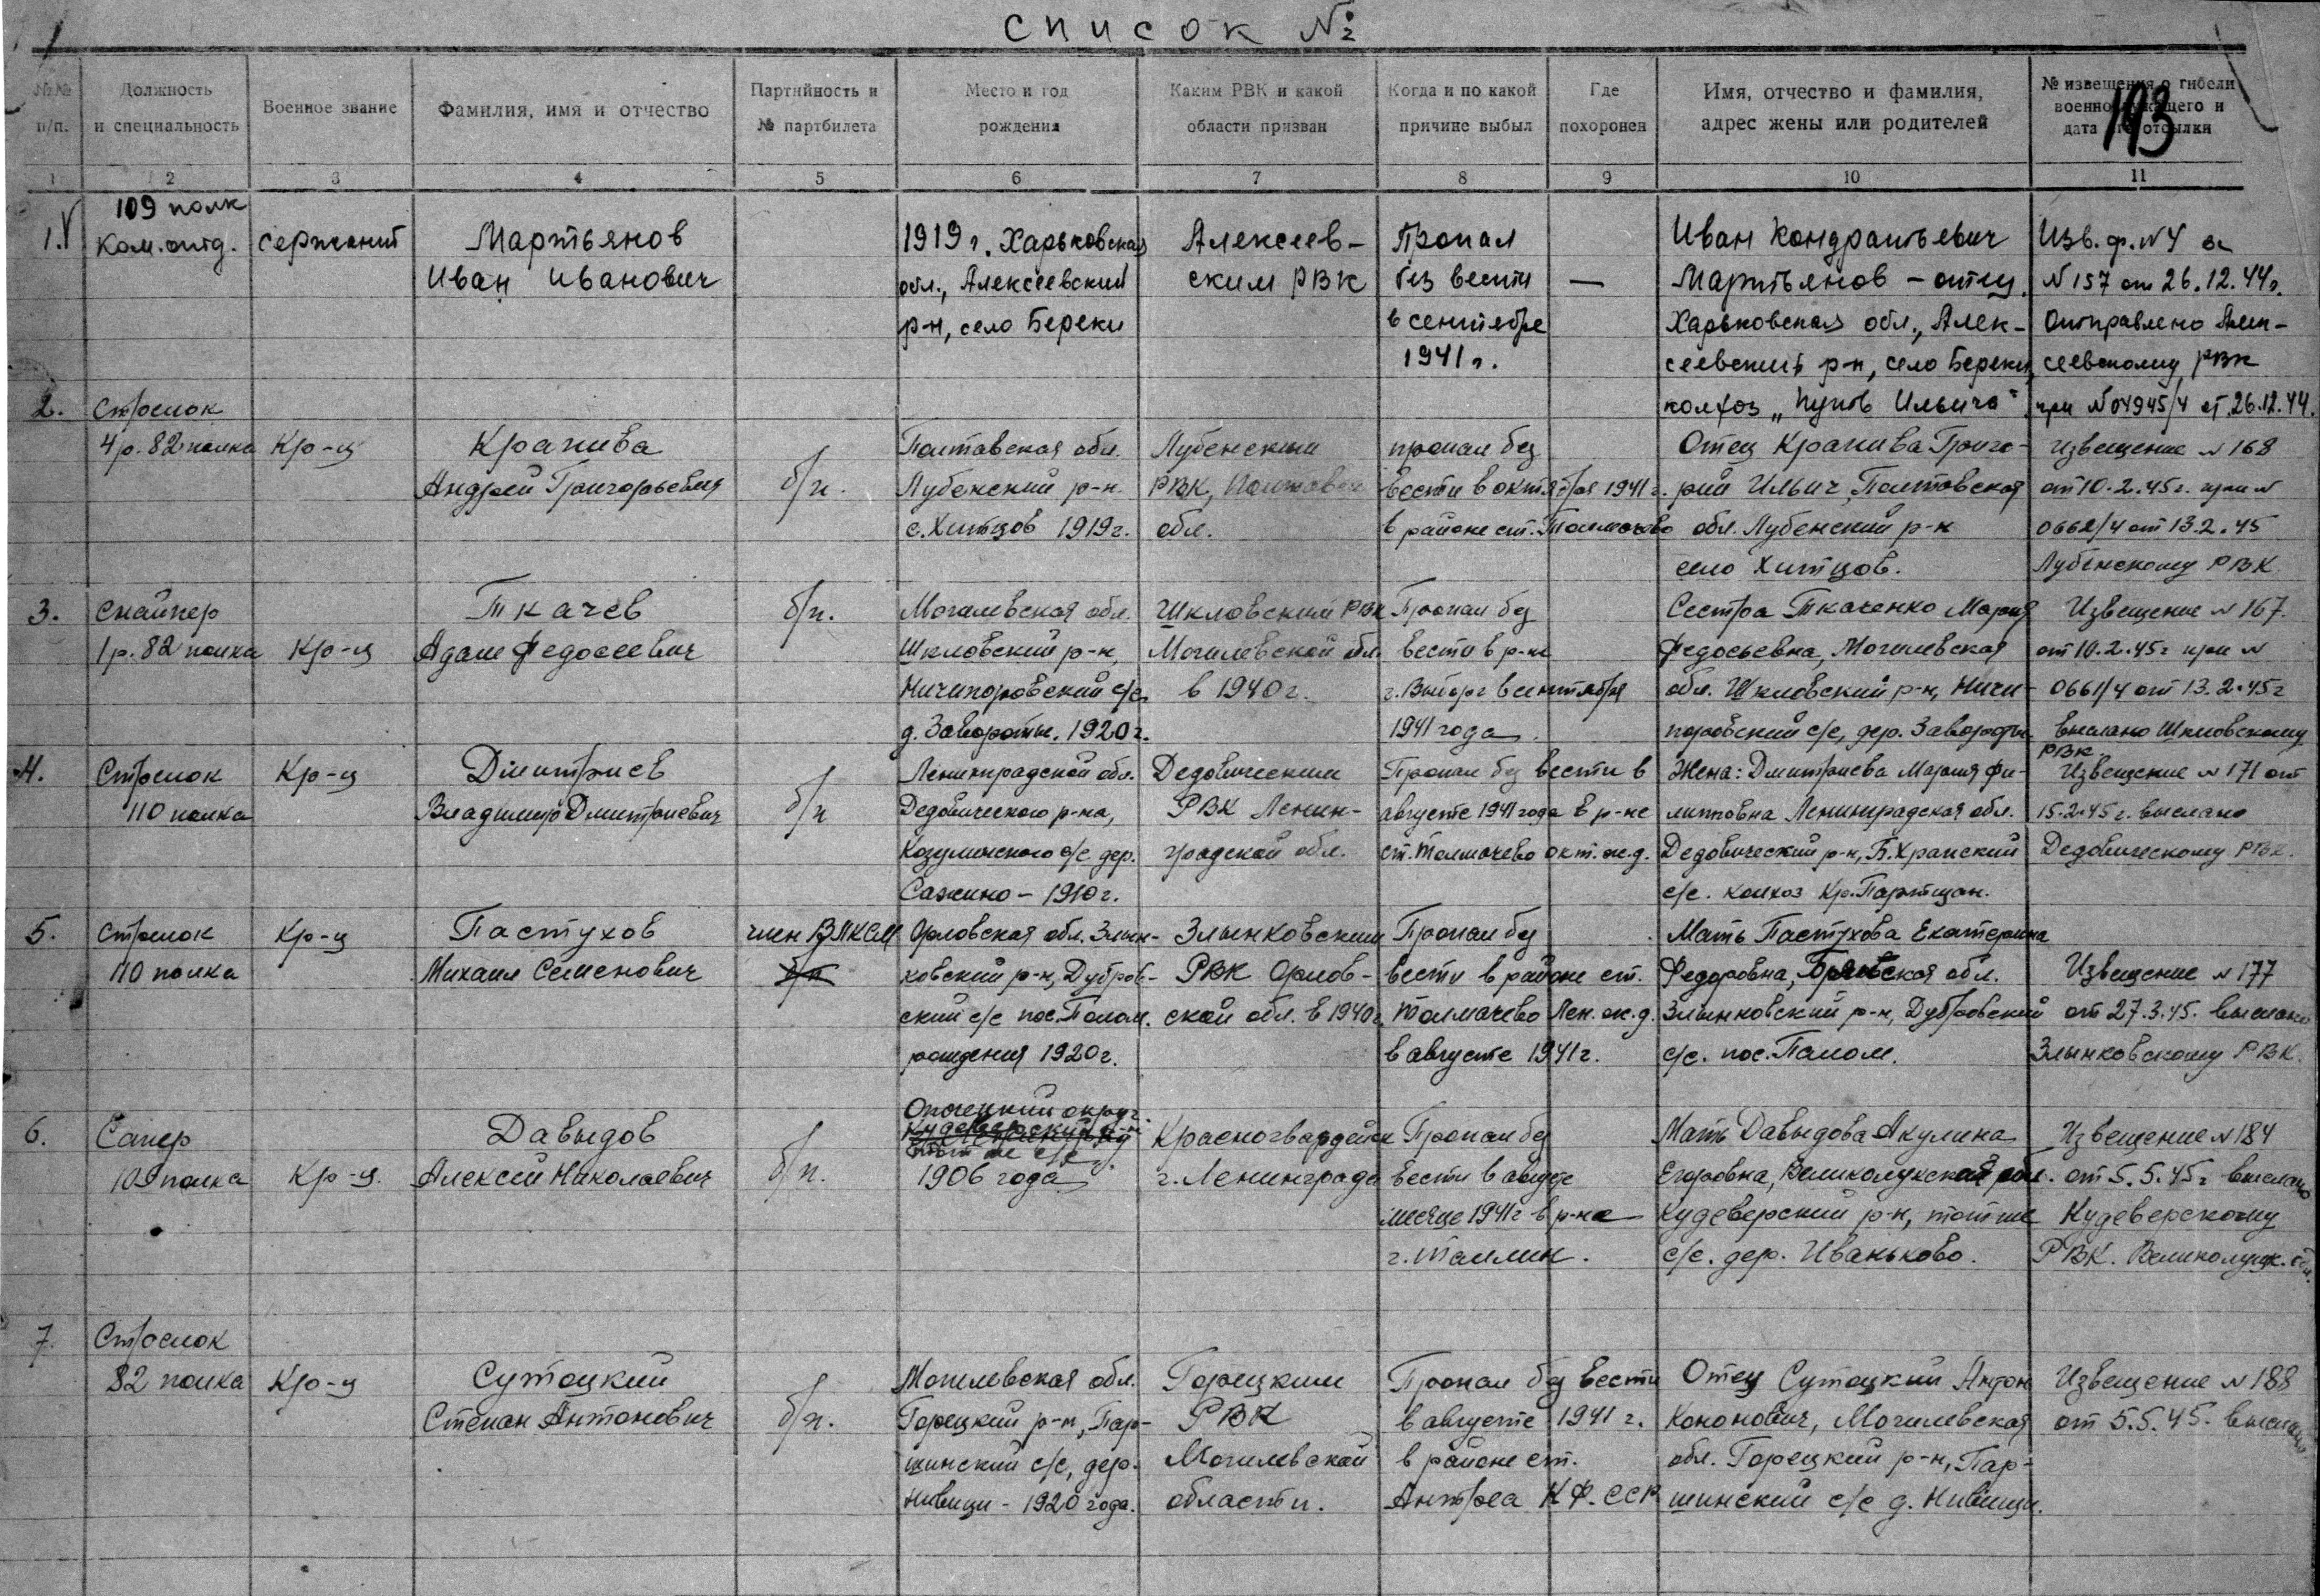 список №
№№ п/п.
Должность и специальность
Военное звание
Фамилия, имя и отчество
Партийность и № партбилета
Место и год рождения
Каким РВК и какой области призван
Когда и по какой причине выбыл
Где похоронен
Имя, отчество и фамилия, адрес жены или родителей
№ извещения о гибели военнослужащего и дата его отсылки
193
1 2 3 4 5 6 7 8 9 10 11
1.
109 полк
Ком. отд.
сержант
Мартьянов
Иван Иванович
1919 г. Харьковская
обл., Алексеевский
р-н, село Береки
Алексеев-
ским РВК
Пропал
без вести
в сентябре
1941 г.
—
Иван Кондратьевич
Мартьянов - отец.
Харьковская обл., Алек-
сеевский р-н, село Береки,
колхоз „Путь Ильича"
Изв. ф. №4 за
№157 от 26.12.44г.
Отправлено Алек-
сеевскому РВК
при №04945/4 от 26.12.44.
2.
Стрелок
4 р. 82 полка
Кр-ц
Крапива
Андрей Григорьевич
б/п.
Полтавская обл.
Лубенский р-н.
с. Хитцов 1919г.
Лубенским
РВК, Полтавской
обл.
пропал без
вести в октябре 1941 г.
в районе ст. Толмачево
Отец Крапива Григо-
рий Ильич, Полтавская
обл. Лубенский р-н
село Хитцов.
Извещение №168
от 10.2.45г. при №
0662/4 от 13.2.45
Лубенскому РВК
3.
Снайпер
1 р. 82 полка
Кр-ц
Ткачев
Адам Федосеевич
б/п.
Могилевская обл.
Шкловский р-н,
Ничипоровский с/с
д. Завороты. 1920г.
Шкловский РВК
Могилевской обл.
в 1940г.
Пропал без
вести в р-не
г. Выборг в сентября
1941 года.
Сестра Ткаченко Мария
Федосьевна, Могилевская
обл. Шкловский р-н, Ничи-
поровский с/с, дер. Завороты
Извещение №167
от 10.2.45г при №
0661/4 от 13.2.45г
выслано Шкловскому
РВК.
4.
Стрелок
110 полка
Кр-ц
Дмитриев
Владимир Дмитриевич
б/п
Ленинградской обл.
Дедовического р-на,
с/с. дер.
Сажино - 1910г.
Дедовическим
РВК Ленин-
градской обл.
Пропал без вести в
августе 1941 года в р-не
ст. Толмачево окт. ж.д.
Жена: Дмитриева Мария Фи-
липповна Ленинградская обл.
Дедовический р-н, Б.Храпский
с/с. колхоз Кр.Партизан.
Извещение №171 от
15.2.45г. выслано
Дедовическому РВК.
5.
Стрелок
110 полка
Кр-ц
Пастухов
Михаил Семенович
член ВЛКСМ
б/п
Орловская обл. Злын-
ковский р-н, Дубров-
ский с/с пос. Палом.
рождения 1920г.
Злынковским
РВК Орлов-
ской обл. в 1940г.
Пропал без
вести в районе ст.
Толмачево Лен. ж.д.
в августе 1941г.
Мать Пастухова Екатерина
Федоровна, Брянская обл.
Злынковский р-н, Дубровский
с/с. пос. Палом.
Извещение №177
от 27.3.45. выслано
Злынковскому РВК.
6.
Сапер
109 полка
Кр-ц.
Давыдов
Алексей Николаевич
б/п.
Опочецкий округ.
Кудеверский р-н
тот же с/с
1906 года
Красногвардейск
г. Ленинграда
Пропал без
вести в августе
месяце 1941г в р-не
г. Таллин.
Мать Давыдова Акулина
Егоровна, Великолукская обл.
Кудеверский р-н, тот же
с/с. дер. Иваньково.
Извещение №184
от 5.5.45г выслано
Кудеверскому
РВК. Великолукск. обл.
7.
Стрелок
82 полка
Кр-ц
Сутоцкий
Степан Антонович
б/п.
Могилевская обл.
Горецкий р-н, Пар-
шинский с/с, дер.
Нивищи - 1920 года.
Горецким
РВК
Могилевской
области.
Пропал без вести
в августе 1941 г.
в районе ст.
Антреа КФ.ССР
Отец Сутоцкий Антон
Кононович, Могилевская
обл. Горецкий р-н, Пар-
шинский с/с д. Нивищи.
Извещение №188
от 5.5.45. выслано